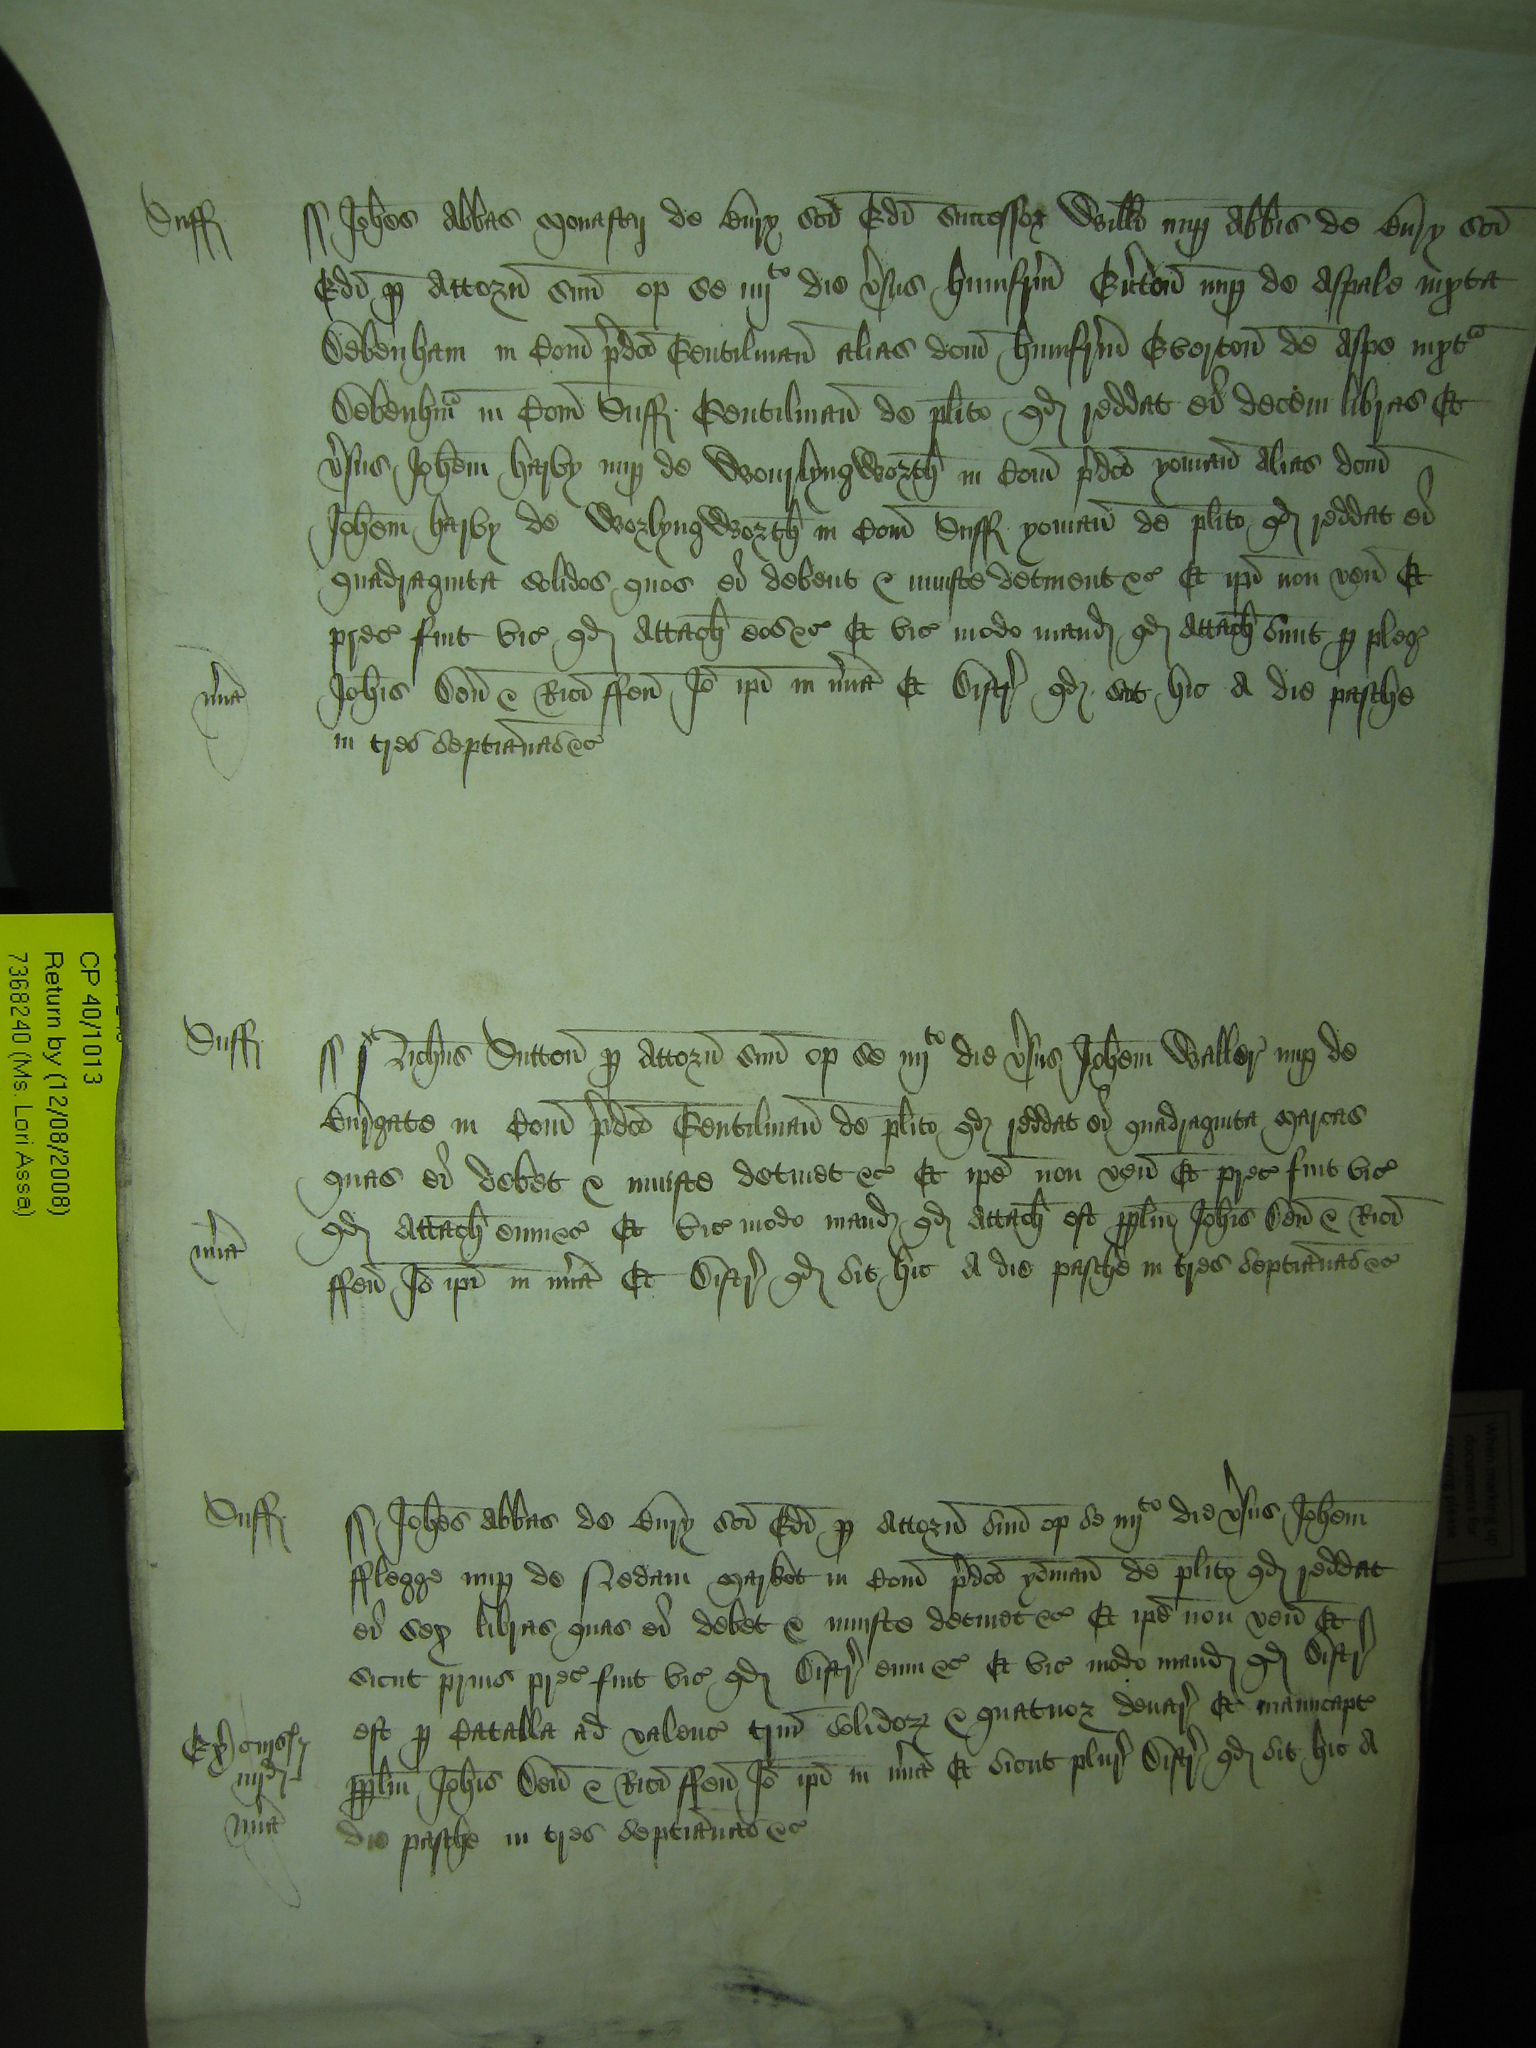 Suff
ss Johes Abbas Monastij de Bury sci Edi successor Willi nup Abbis de Bury sci
Edi p Attorn suu op se iiijto die vsus Humfrm Evton nup de Aspale iuxta
Debenham in Com pdco Gentilman alias dcm Humfrm Everton de Aspe iuxta
Debenhm in Com Suff Gentilman de plito qd reddat ei decem libras Et
vsus Johem Harby nup de Wourlyngworth in Com pdco yoman alias dcm
Johem Harby de Worlyngworth in Com Suff yoman de plito qd reddat ei
quadraginta solidos quos ei debent & iniuste detinent &c Et ipi non ven Et
prec fuit vic qd Attach eos &c Et vic modo mand qd Attach sunt p pleg
mia
Johis Den & Rici ffen Io ipi in mia Et Distr qd sit hic A die pasche
in tres septianas &c
Suff
ss Richus Sutton p Attorn suu op se iiijto die vsus Johem Waller nup de
Burgate in Com pdco Gentilman de plito qd reddat ei quadraginta Marcas
quas ei debet & iniuste detinet &c Et ipe non ven Et prec fuit vic
qd Attach eum &c Et vic modo mand qd Attach est p plm Johis Den & Rici
mia
ffen Io ipi in mia Et Distr qd sit hic A die pasche in tres septianas &c
Suff
ss Johes Abbas de Bury sci Edi p Attorn suu op se iiijto die vsus Johem
fflegge nup de Nedam Market in Com pdco yoman de plito qd reddat
ei sex libras quas ei debet & iniuste detinet &c Et ipe non ven Et
sicut prius prec fuit vic qd Distr eum &c Et vic modo mand qd Distr
est p Catalla ad valenc triu solidor & quatuor denar Et manucapt
Ex
iiijd
p plm Johis Den & Rici ffen Io ipi in mia Et sicut plur Distr qd sit hic A
mia
die pasche in tres septianas &c
CP 40/1013
Return by (12/08/2008)
7368240 (Ms. Lori Assa)